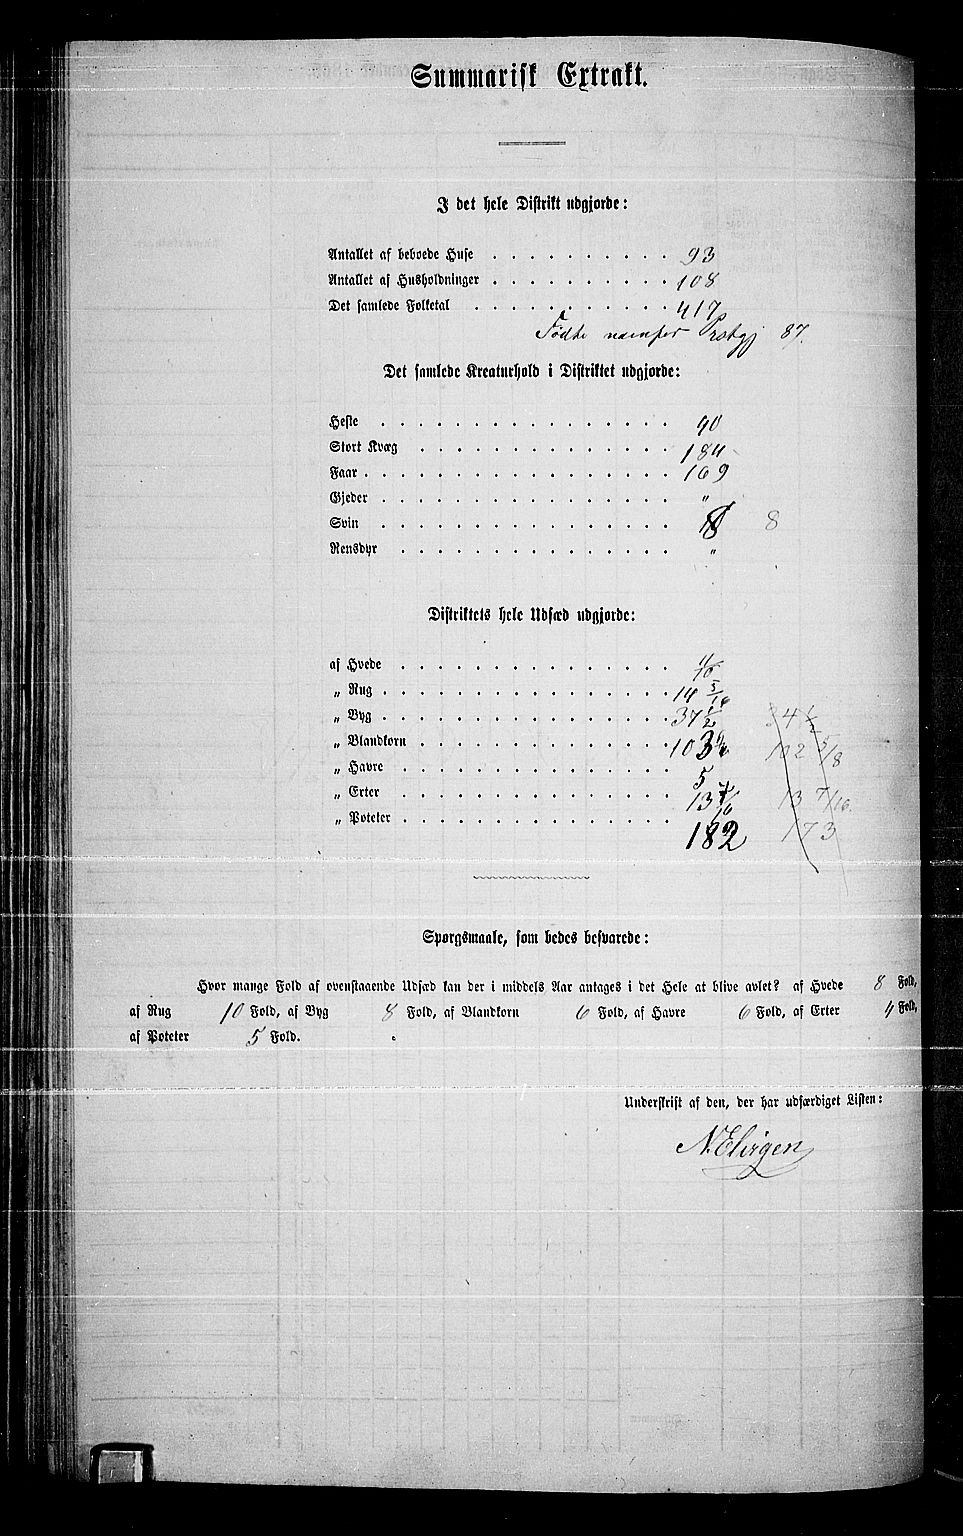 Summarisk Extrakt.
I det hele Distrikt udgjorde:
Antallet af beboede Huse . . . . . . . . . . 93
Antallet af Husholdninger . . . . . . . . . . 108
Det samlede Folketal . . . . . . . . . . . 417
Fødte Prstgj 87.
Det samlede Kreaturhold i Distriktet udgjorde:
Heste . . . . . . . . . . . . . . . . 40
Stort Kvæg . . . . . . . . . . . . . . 184
Faar . . . . . . . . . . . . . . . . . 169
Gjeder . . . . . . . . . . . . . . . . "
Svin . . . . . . . . . . . . . . . . 8 8
Rensdyr . . . . . . . . . . . . . . . "
Distriktets hele Udsæd udgjorde:
af Hvede . . . . . . . . . . . . . . .
„ Rug . . . . . . . . . . . . . . . . 14 5/16
„ Byg . . . . . . . . . . . . . . . . 37 1/2 34 1/2
„ Blandkorn . . . . . . . . . . . . . . 103 102 5/8
„ Havre . . . . . . . . . . . . . . . 5
„ Erter . . . . . . . . . . . . . . . 13 7/16 13 7/16
„ Poteter . . . . . . . . . . . . . . . 182 173
Spørgsmaale, som bedes besvarede:
Hvor mange Fold af ovenstaaende Udsæd kan der i middels Aar antages i det Hele at blive avlet? af Hvede 8 Fold,
af Rug 10 Fold, af Byg 8 Fold, af Blandkorn 6 Fold, af Havre 6 Fold, af Erter 4 Fold,
af Poteter 5 Fold.
Underskrift af den, der har udfærdiget Listen: